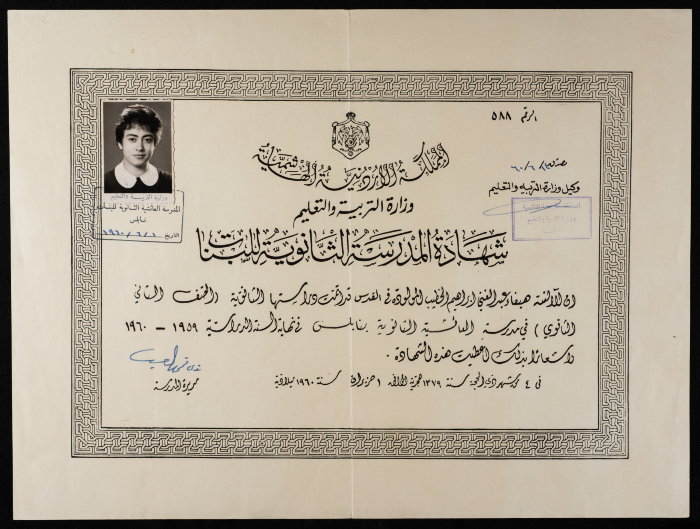 الرقم ٥٨٨
المملكة الأردنية الهاشمية
وزارة التربية والتعليم
وكيل وزارة التربية والتعليم
٦٠/٦/
وزارة التربية والتعليم
المدرسة العائشية الثانوية للبنات
نابلس
التاريخ ١٩٦٠/٦/١
شهادة المدرسة الثانوية للبنات
ان الآنسة هيفاء عبد الغني ابراهيم الخطيب المولودة في القدس قد أتمت دراستها الثانوية (الصف الثاني
الثانوي) في مدرسة العائشية الثانوية بنابلس في نهاية السنة الدراسية ١٩٥٩ – ١٩٦٠
واشعارا بذلك اعطيت هذه الشهادة .
في ٤ من شهر ذي الحجة سنة ١٣٧٩ هجرية الموافق ١ حزيران سنة ١٩٦٠ ميلادية
مديرة المدرسة